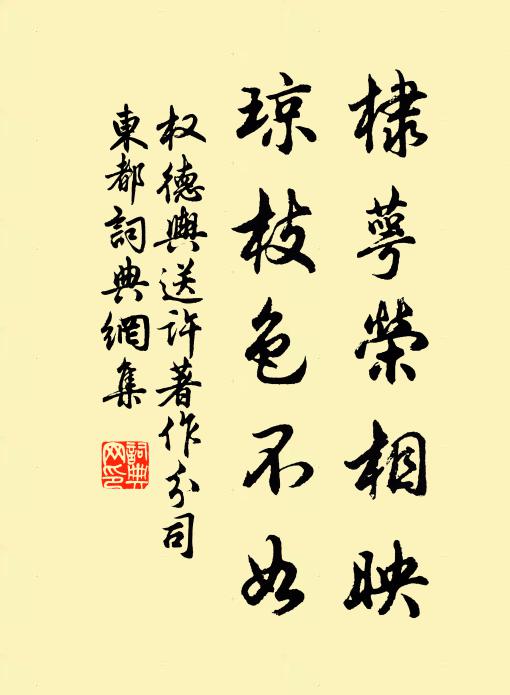 棣萼榮相映
琼枝色不如
权德輿送许著作分司
東都詞典網集
詞典網印